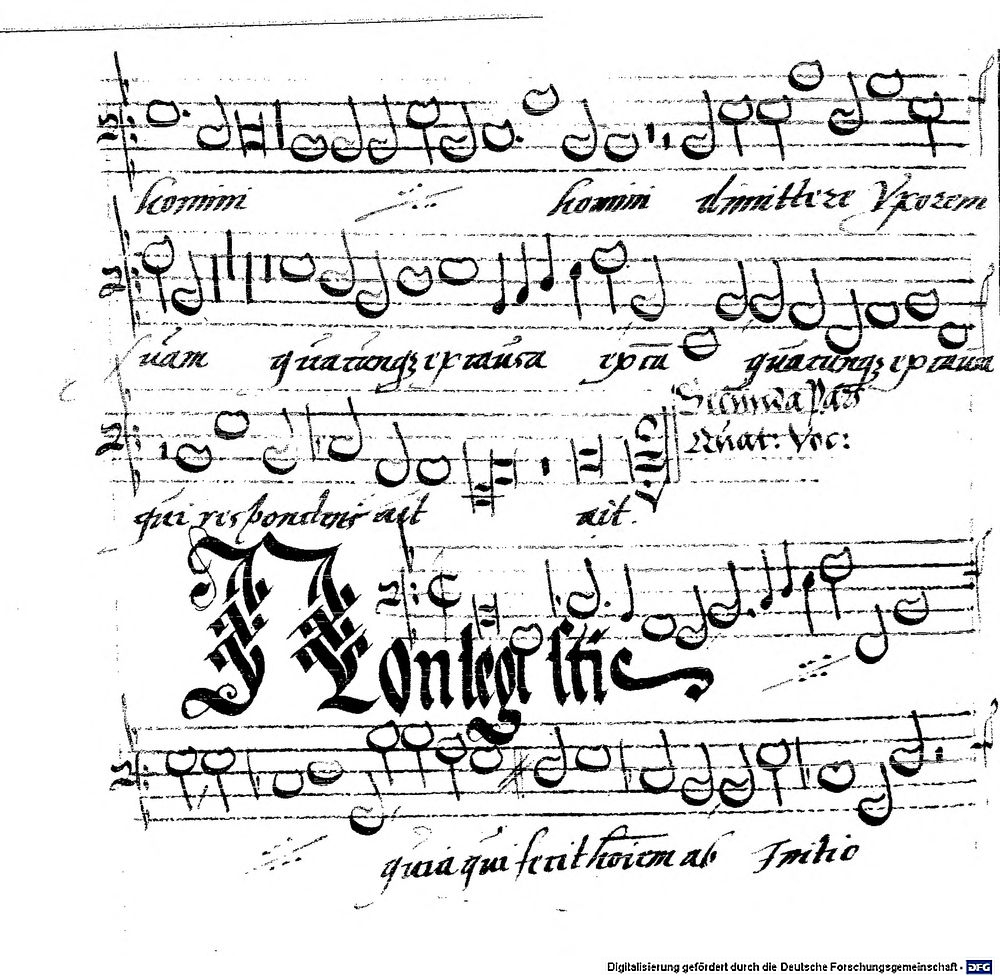 homini homini dimittere Vxorem
suam quacunqʒ ex causa ex cā quacunqʒ ex causa
Secunda Pars
Quat: Voc:
qui respondens ait ait.
Non legistis
quia qui fecit hoīem ab Initio
Digitalisierung gefördert durch die Deutsche Forschungsgemeinschaft - DFG